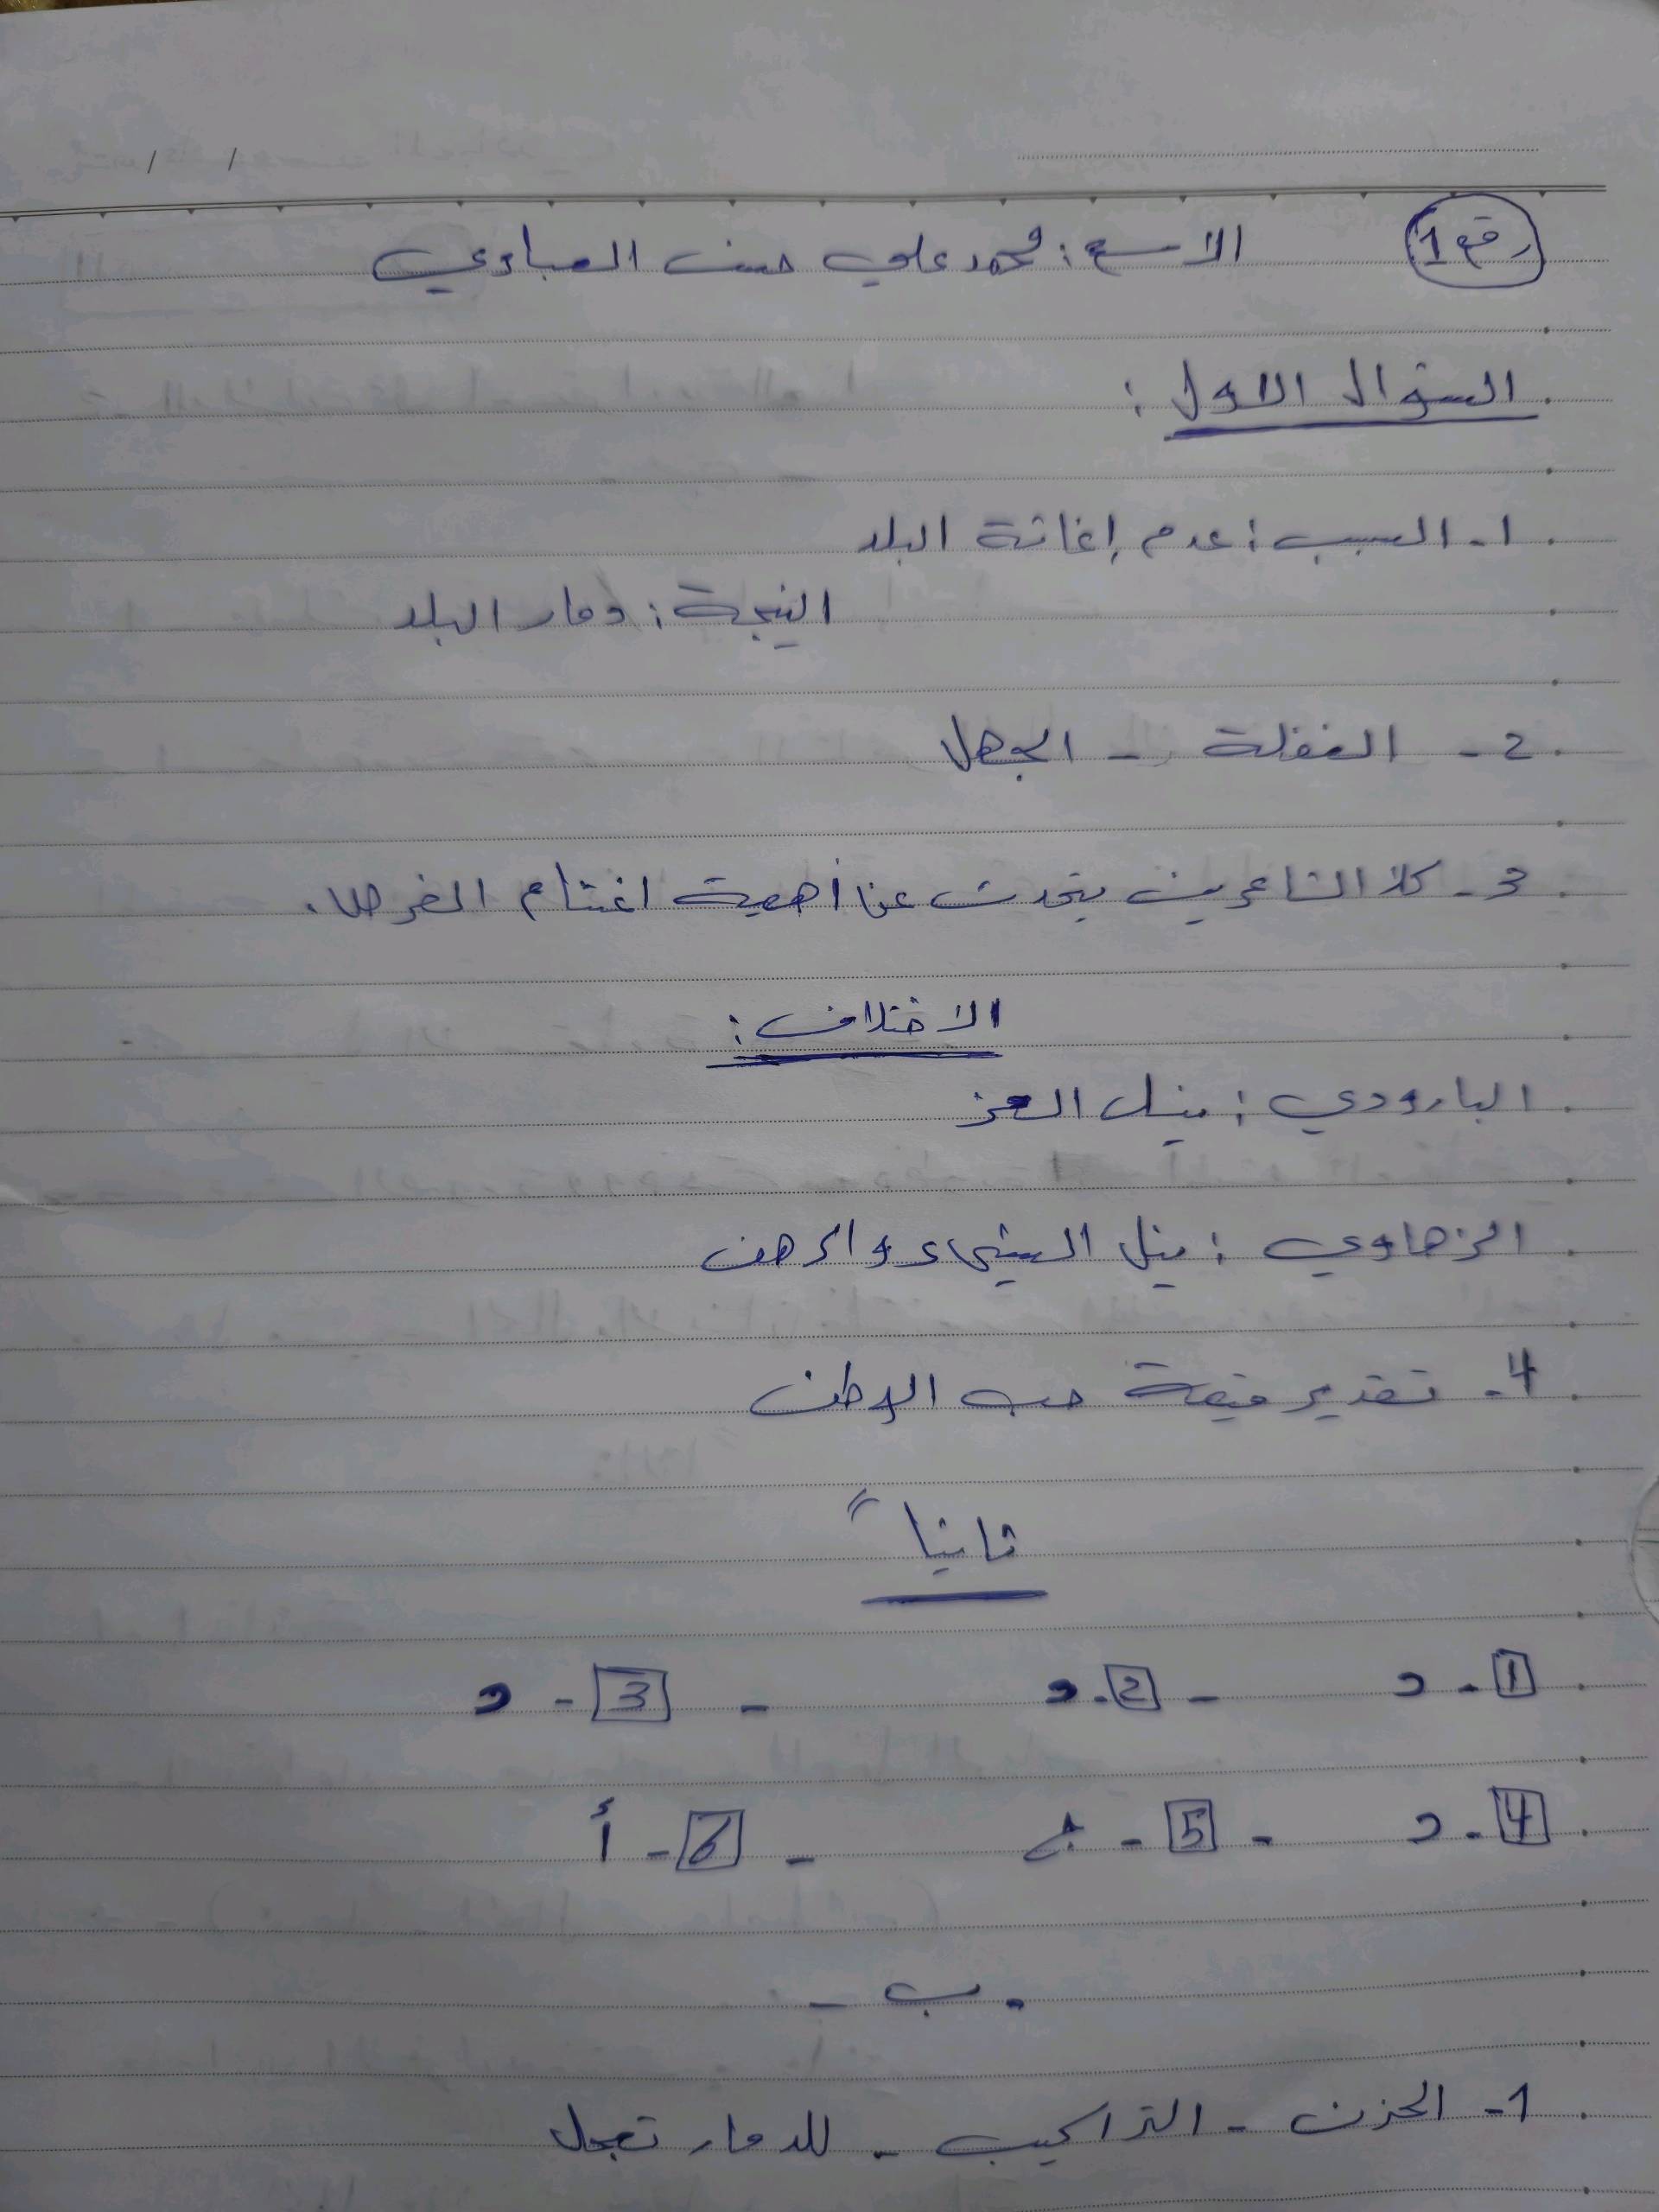 رقم 1
الاسم : محمد علي حسن العبادي
السؤال الاول :
1- السبب : عدم إغاثة البلد
النيجة : دمار البلد
2- الغفلة - الجهل
3- كلا الشاعرين يتحدث عن أهمية اغتنام الفرص .
الاختلاف :
البارودي : نيل العز
الزهاوي : نيل الشيء والرهن
4- تقدير قيمة حب الوطن
ثانياً
1 - د - 2 - د - 3 - د
4 - د - 5 - ج - 6 - أ
- ب -
1- الحزن - التراكيب - للدمار تعجل